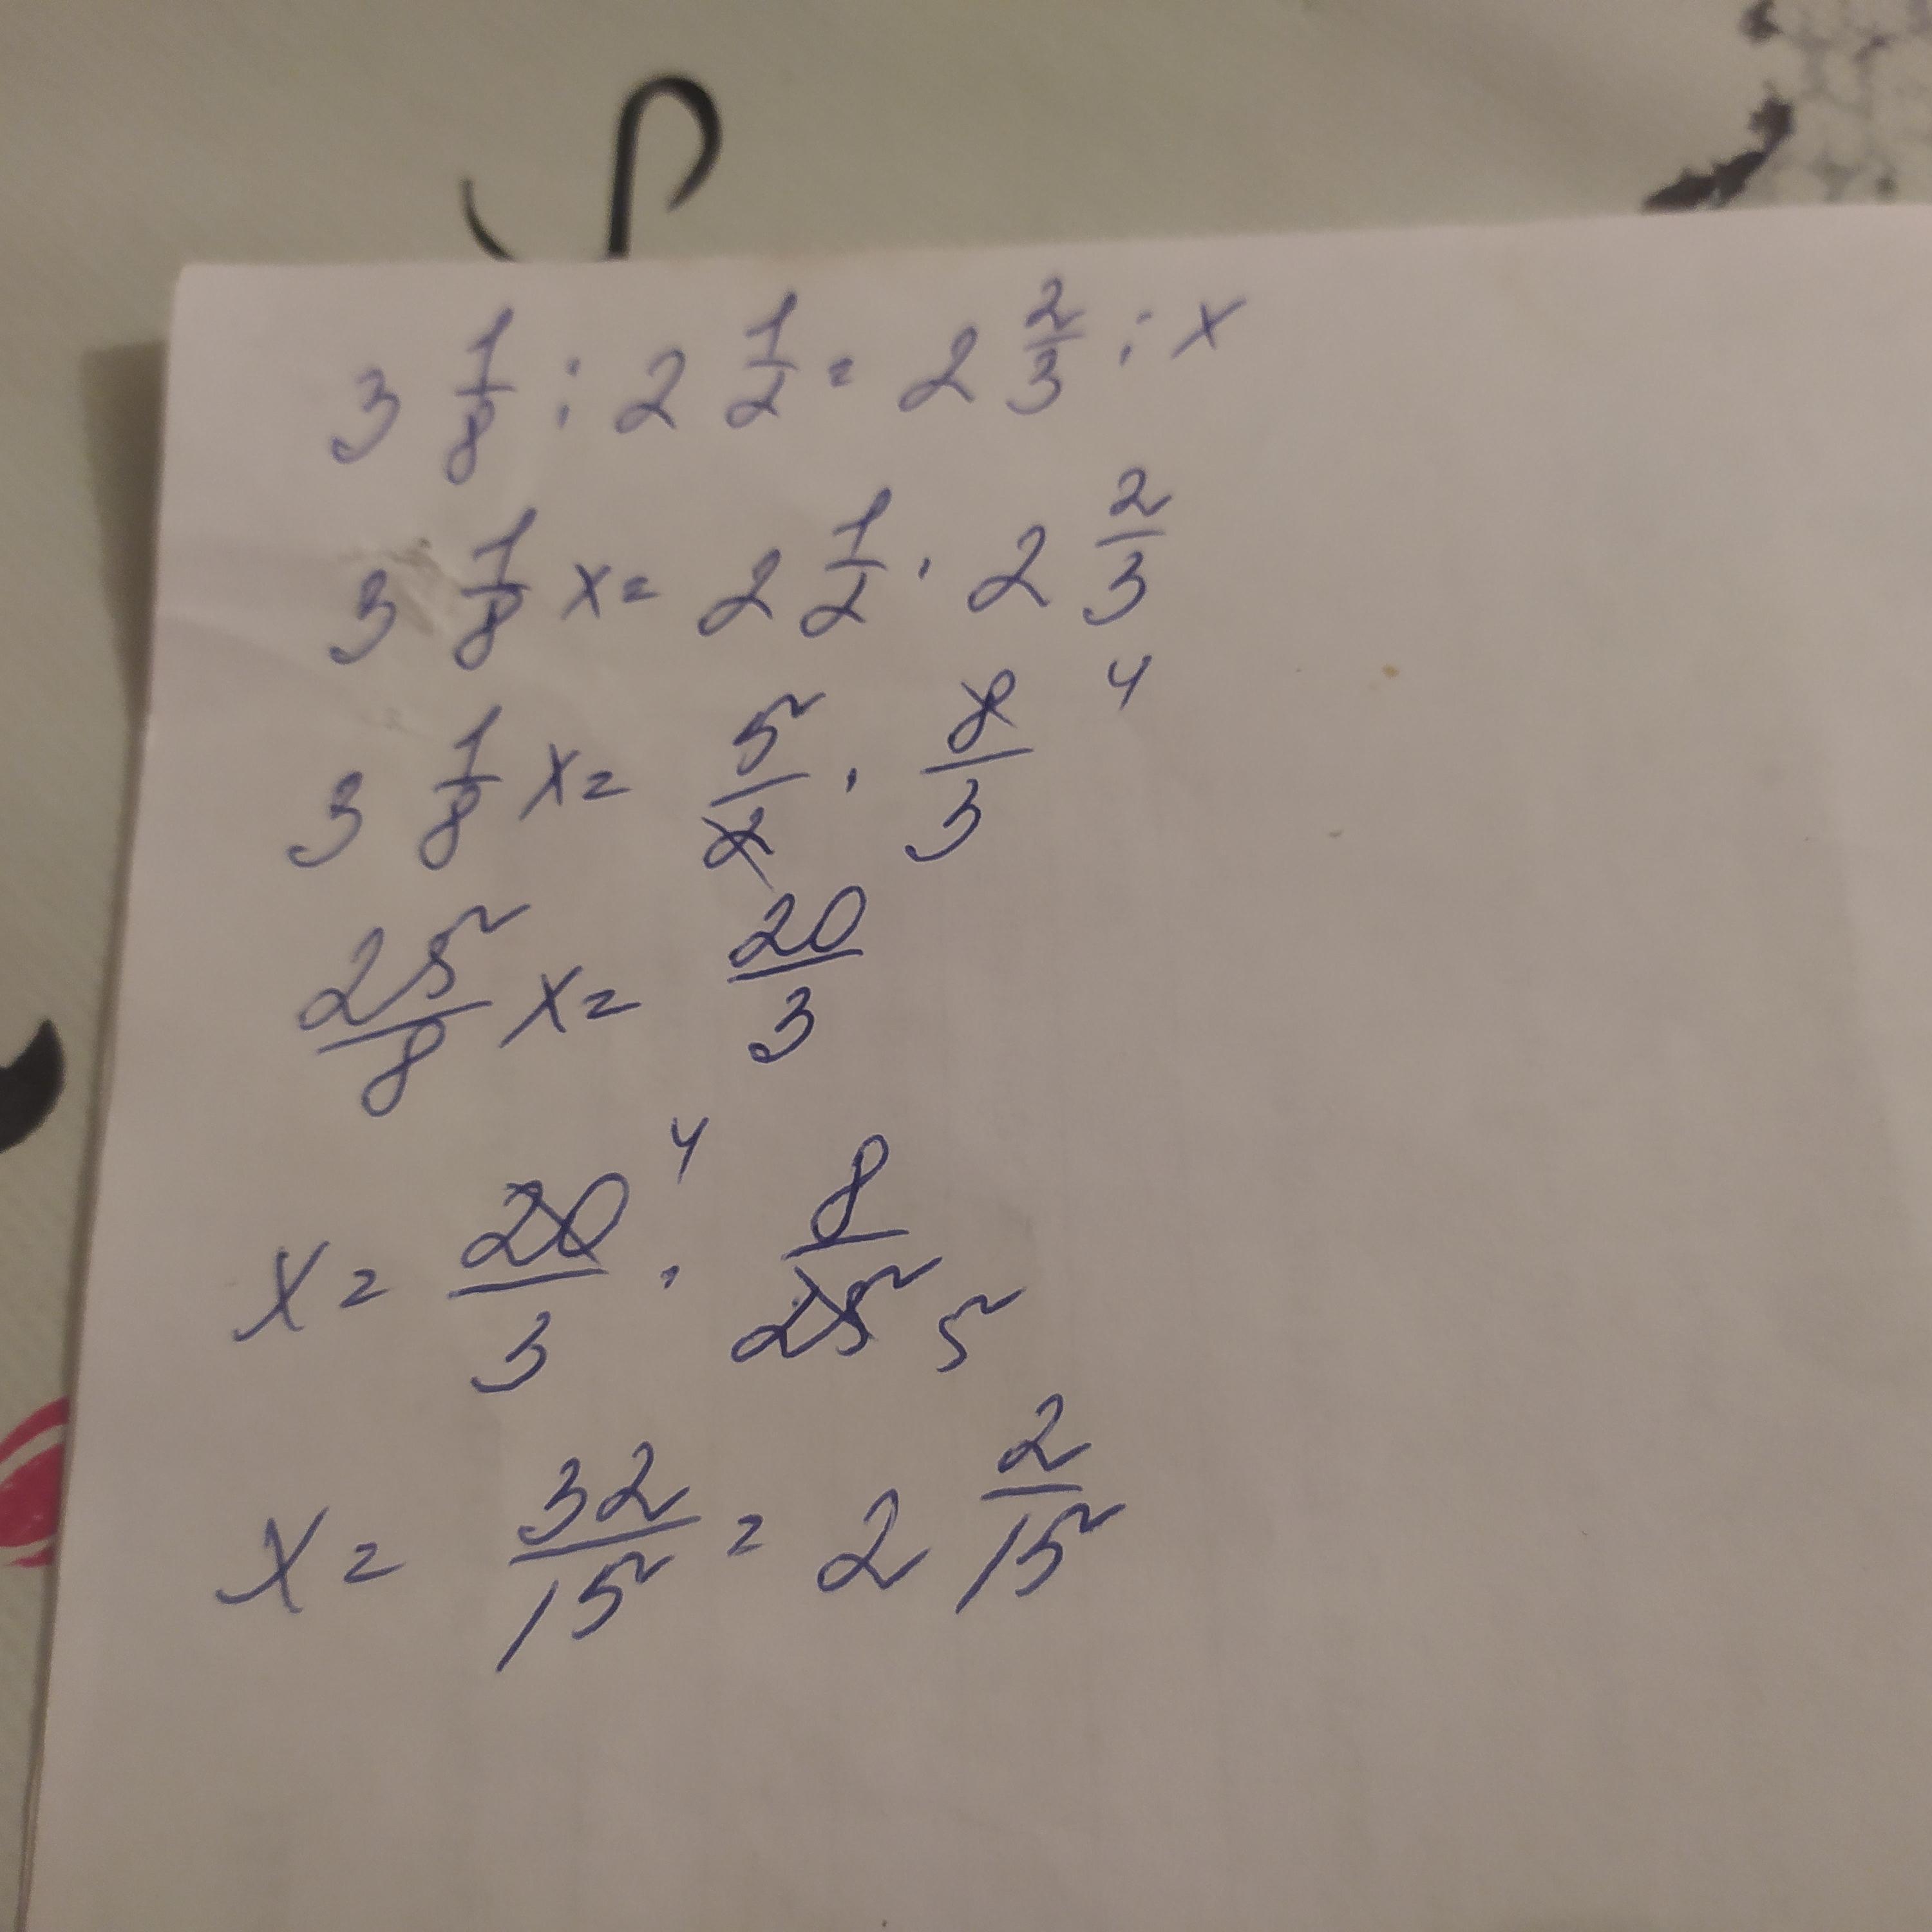 3 1/8 : 2 1/2 = 2 2/3 : x
3 1/8 x = 2 1/2 · 2 2/3
3 1/8 x = 5/2 · 8/3 4
25/8 x = 20/3
x = 20/3 4 · 8/25 5
x = 32/15 = 2 2/15